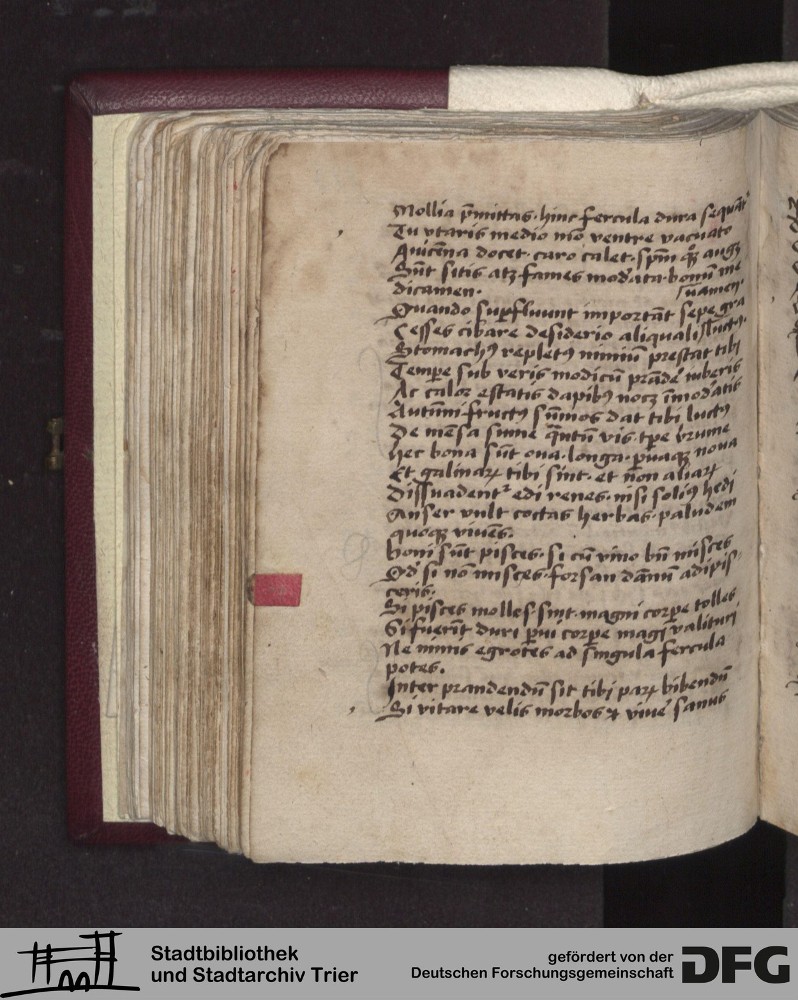 Mollia p̄mittas · hinc fercula dura sequāt᷑
Tu vtaris medio nō ventre vacuato
Auicēna docet · caro calet · spm̄ qꝫ augꝫ
Sūt sitis atꝫ fames mod'ata · bonū me
dicamen · uamen·
Quando supfluunt importāt sepe gra
Cesses cibare desiderio aliquali
Stomachꝰ repletꝰ nimiū prestat tibi luctū·
Tempe sub veris modicū prādē iuberis
Ac calor estatis dapibꝰ nocꝫ īmod'atis
Autūni fructꝰ sūmos dat tibi luctꝰ
De mēsa sume q̄ntū vis · tpe brume
Hec bona sūt oua · longa · puaqꝫ noua
Et galinaꝝ tibi sint · et non aliaꝝ
Dissuadent᷑ edi renes · nisi soliꝰ hedi
Anser vult coctas herbas · paludem
quoqꝫ viuēs ·
Boni sūt pisces · si cū vino bn̄ misces
Qd' si nō misces · forsan dānū adipis
ceris ·
Si pisces molles sint · magni corpe tolles
Si fuerīt duri pui corpe magꝭ valituri
Ne nimis egrotes ad singula fercula
potes ·
Inter prandendū sit tibi paꝝ bibendū
Si vitare velis morbos ⁊ viuē sanus
Stadtbibliothek
und Stadtarchiv Trier
gefördert von der
Deutschen Forschungsgemeinschaft
DFG